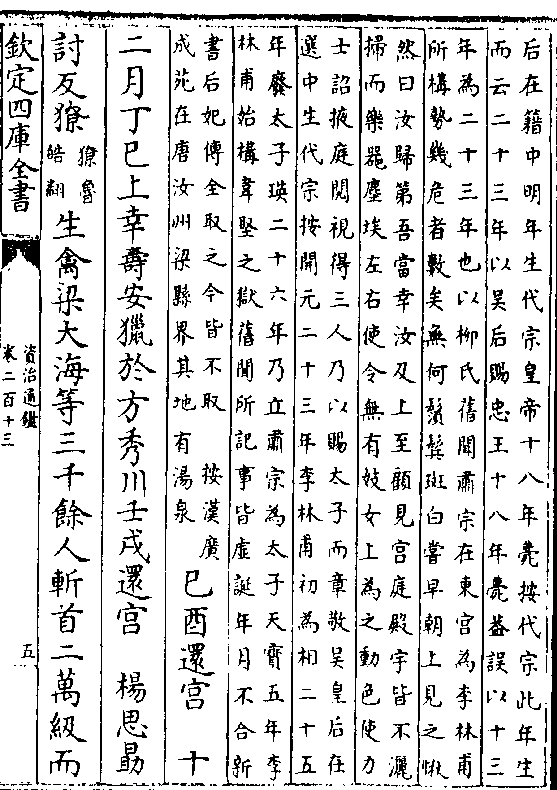 后在籍中明年生代宗皇帝十八年薨按代宗此年生
而云二十三年以吴后賜忠王十八年薨葢誤以十三
年為二十三年也以柳氏舊聞肅宗在東宮為李林甫
所構勢幾危者數矣無何鬚鬢斑白嘗早朝上見之愀
然曰汝歸第吾當幸汝及上至顧見宫庭殿宇皆不灑
掃而樂噐塵埃左右使令無有妓女上為之動色使力
士詔掖庭閲視得三人乃以賜太子而章敬吴皇后在
選中生代宗按開元二十三年李林甫初為相二十五
年廢太子瑛二十六年乃立肅宗為太子天寶五年李
林甫始構韋堅之獄舊聞所記事皆虚誕年月不合新
書后妃傳全取之今皆不取 按漢廣
成苑在唐汝州梁縣界其地有湯泉
己酉還宫 十
二月丁巳上幸壽安獵於方秀川壬戌還宫 楊思勗
討反獠獠魯皓翻生禽梁大海等三千餘人斬首二萬級而
欽定四庫全書
資治通鑑
卷二百十三
五